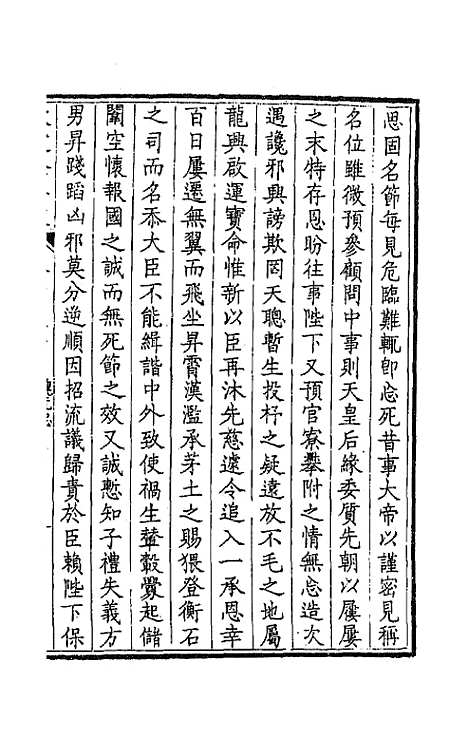 思固名節每見危臨難輒即忘死昔事大帝以謹密見稱
名位雖微預參顧問中事則天皇后緣委質先朝以屢屢
之末特存恩盼往事陛下又預官寮攀附之情無忘造次
遇讒邪興謗欺罔天聰暫生投杼之疑遠放不毛之地屬
龍興啟運寶命惟新以臣再沐先慈遽令追入一承恩幸
百日屢遷無翼而飛坐昇霄漢濫承茅土之賜猥登衡石
之司而名忝大臣不能緝諧中外致使禍生輦轂釁起儲
闈空懷報國之誠而無死節之效又誠慙知子禮失義方
男昇踐蹈凶邪莫分逆順因招流議歸責於臣賴陛下保